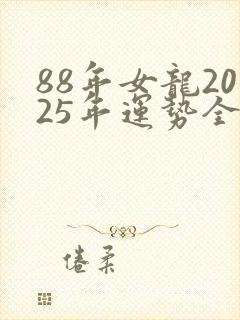 88年女龍20
25年運勢全
倦柔